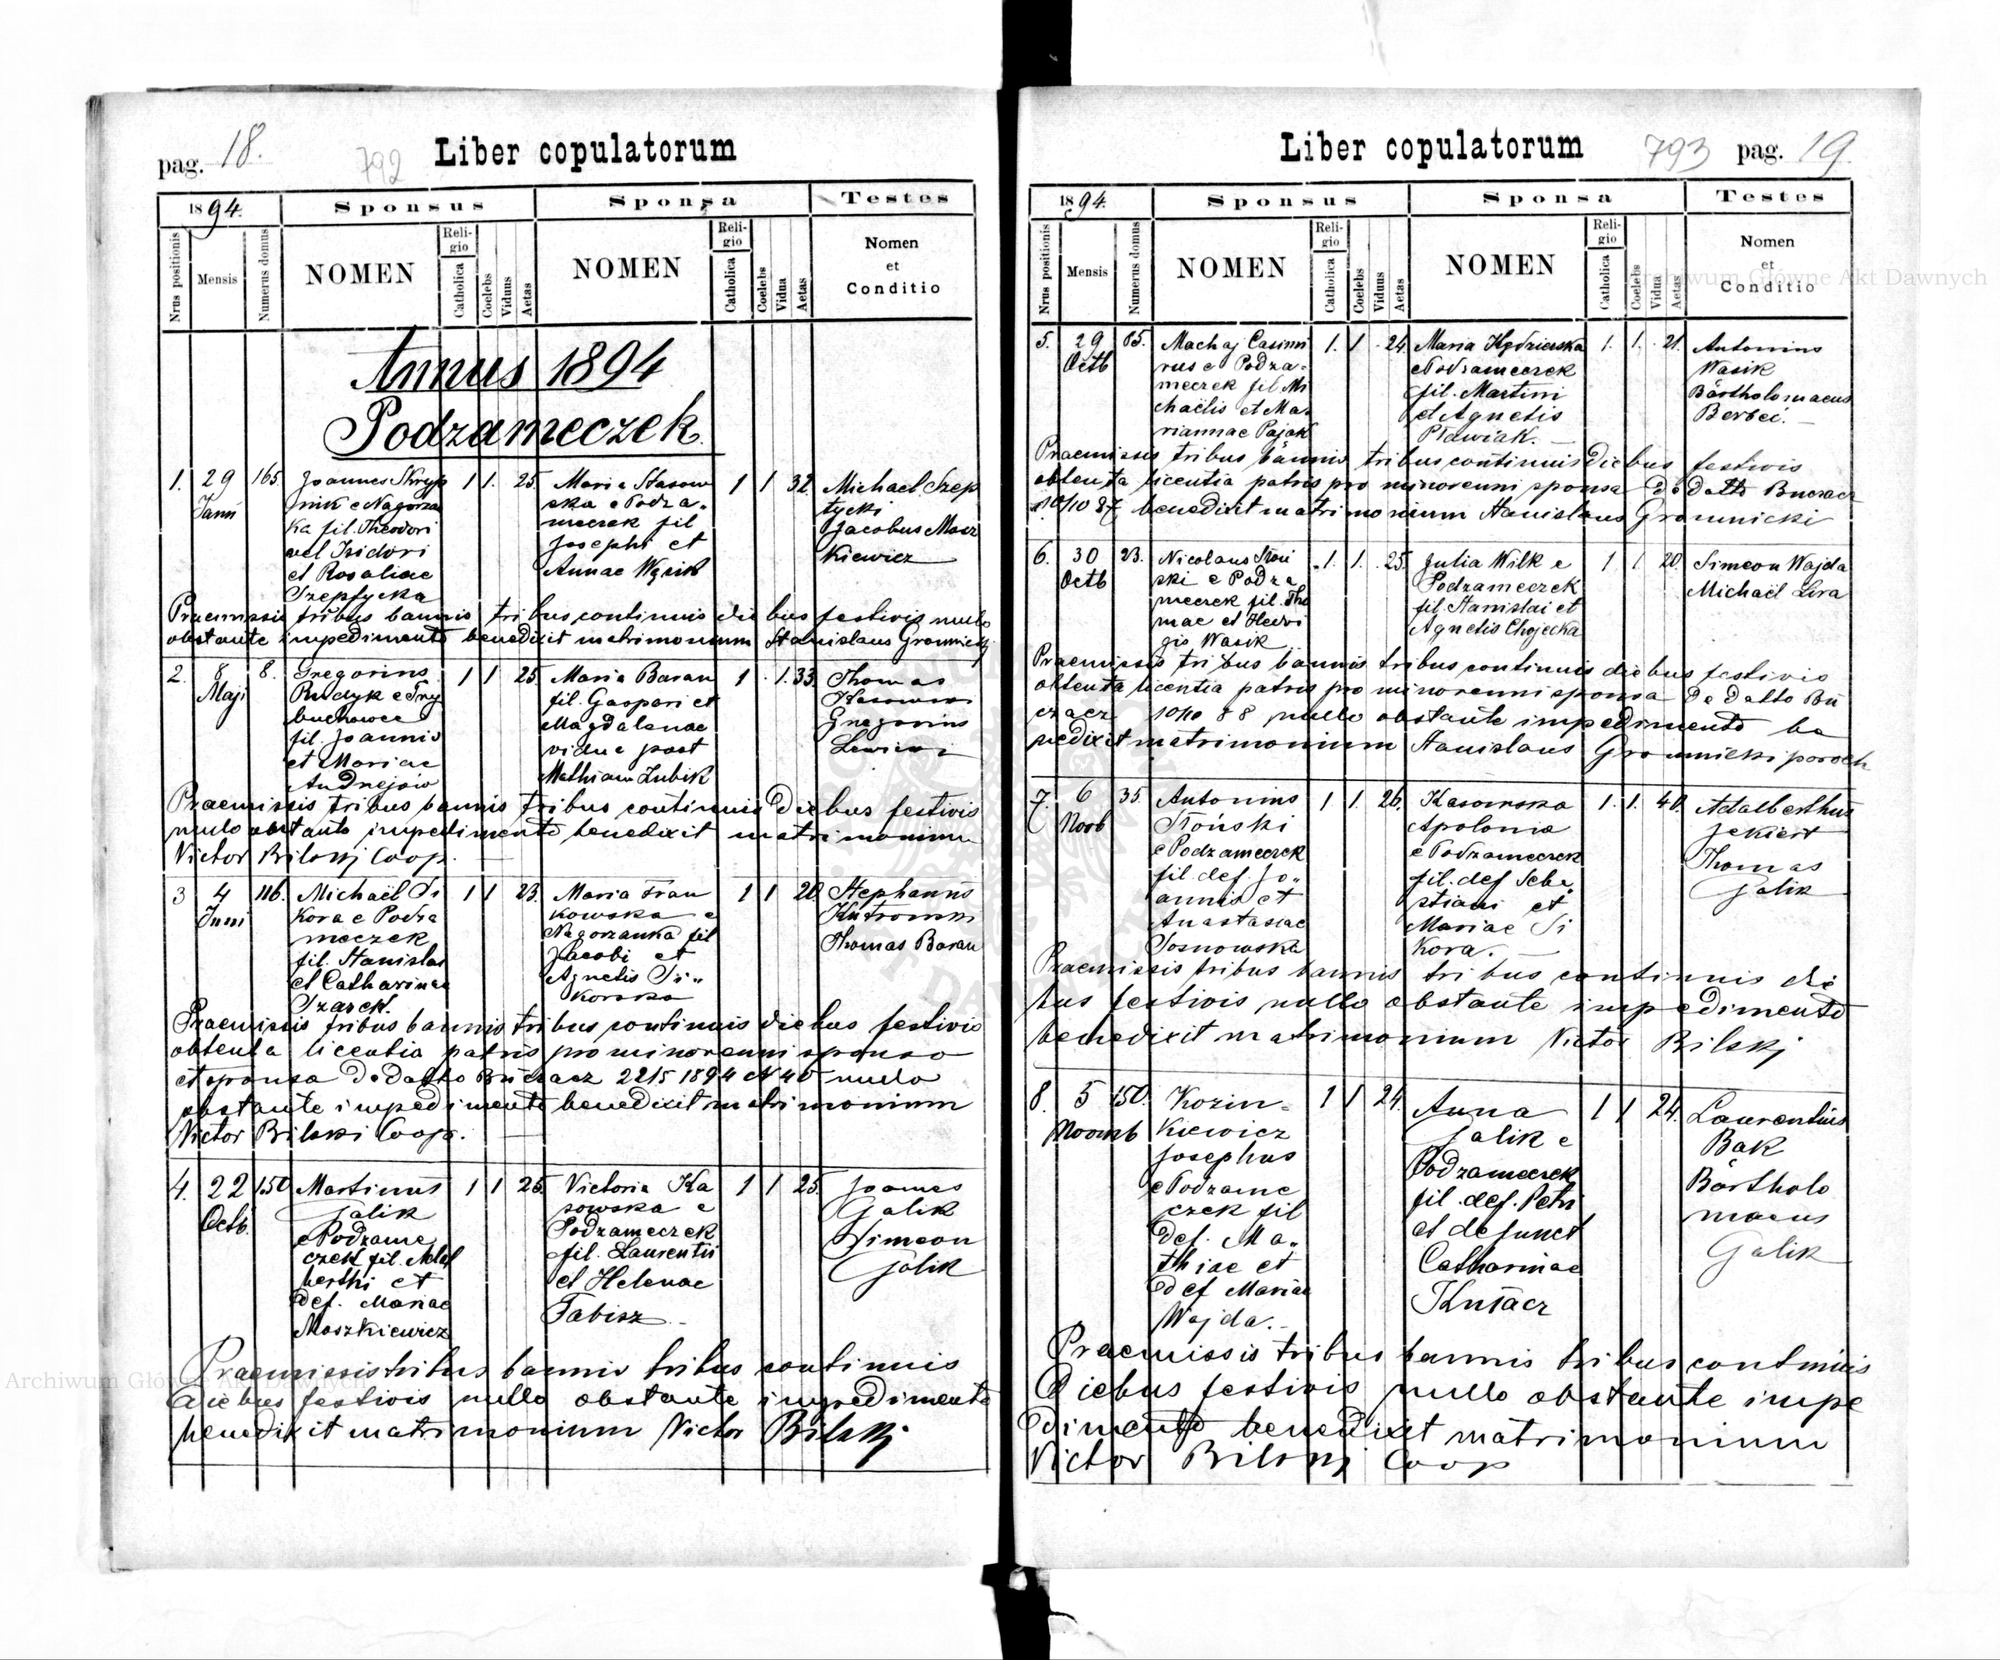 pag. 18.
792
Liber copulatorum
1894.
Sponsus
Sponsa
Testes
Nrus positionis
Mensis
Numerus domus
NOMEN
Religio
Catholica
Coelebs
Viduus
Aetas
NOMEN
Religio
Catholica
Coelebs
Vidua
Aetas
Nomen
et
Conditio
Annus 1894
Podzameczek.
1. 29 Janu 165.
Joannes Skrzyp
nik e Nagorza
ka fil. Theodori
vel Isidori
et Rosaliae
Szeptycka
1 1. 25.
Maria Stasow
ska e Podza-
meczek fil
Josephi et
Annae Wąsik
1 1 32.
Michael Szep
tycki
Jacobus Mosz
kiewicz
Praemissis tribus bannis tribus continuis diebus festivis nullo
obstante impedimento benedixit matrimonium Stanislaus Gromnicki
2. 8 Maji 8.
Gregorius
Rudyk e Try
buchowce
fil. Joannis
et Mariae
Andrejów
1 1 25.
Maria Baran
fil. Gaspari et
Magdalenae
vidua post
Mathiam Zubik
1 1. 33.
Thomas
Kasowski
Gregorius
Lewicki
Praemissis tribus bannis tribus continuis diebus festivis
nullo obstante impedimento benedixit matrimonium
Victor Bilski Coop.
3 4 Juni 116.
Michaël Si
kora e Podza
meczek
fil. Stanislai
et Catharinae
Szarek.
1 1 23.
Maria Fran
kowska e
Nagorzanka fil
Jacobi et
Agnetis Si-
korska
1 1 20.
Stephanus
Kutrowski
Thomas Baran
Praemissis tribus bannis tribus continuis diebus festivis
obtenta licentia patris pro minorenni sponso
et sponsa de datto Buczacz 22/5 1894 N 40 nullo
obstante impedimento benedixit matrimonium
Victor Bilski Coop.
4. 22 Octb. 150
Martinus
Galik
e Podzame
czek fil. Adal
berthi et
def. Mariae
Moszkiewicz
1 1 26.
Victoria Ka
sowska e
Podzameczek
fil. Laurentii
et Helenae
Tabisz
1 1 25.
Joannes
Galik
Simeon
Galik
Praemissis tribus bannis tribus continuis
diebus festivis nullo obstante impedimento
benedixit matrimonium Victor Bilski
Liber copulatorum
793
pag. 19.
1894.
Sponsus
Sponsa
Testes
Nrus positionis
Mensis
Numerus domus
NOMEN
Religio
Catholica
Coelebs
Viduus
Aetas
NOMEN
Religio
Catholica
Coelebs
Vidua
Aetas
Nomen
et
Conditio
5. 29 Octb 65.
Machaj Casimi
rus e Podza-
meczek fil Mi
chaëlis et Ma
riannae Pająk
1. 1 24.
Maria Kędzierska
e Podzameczek
fil. Martini
et Agnetis
Pławiak.
1. 1. 21.
Antonius
Wasik
Bartholomaeus
Berbeć.
Praemissis tribus bannis tribus continuis diebus festivis
obtenta licentia patris pro minorenni sponsa de datto Buczacz
10/10 87 benedixit matrimonium Stanislaus Gromnicki
6. 30 Octb 23.
Nicolaus Słoń
ski e Podza
meczek fil. Tho
mae et Hedvi
gis Wasik
1. 1. 25.
Julia Wilk e
Podzameczek
fil. Stanislai et
Agnetis Chojecka
1 1 20.
Simeon Wajda
Michaël Lira
Praemissis tribus bannis tribus continuis diebus festivis
obtenta licentia patris pro minorenni sponsa de datto Bu
czacz 10/10 88 nullo obstante impedimento be
nedixit matrimonium Stanislaus Gromnicki paroch
7. 6 Novb 35.
Antonius
Słoński
e Podzameczek
fil. def. Jo-
annis et
Anastasiae
Sosnowska
1 1. 26.
Kasowska
Apolonia
e Podzameczek
fil. def Seba-
stiani et
Mariae Si
kora.
1. 1. 40.
Adalberthus
Jekiert
Thomas
Galik
Praemissis tribus bannis tribus continuis die
bus festivis nullo obstante impedimento
benedixit matrimonium Victor Bilski
8. 5 Novmb 150.
Kozin-
kiewicz
Josephus
e Podzame
czek fil
def. Ma-
thiae et
def Mariae
Wajda.
1 1 24.
Anna
Galik e
Podzameczek
fil. def. Petri
et defunct
Catharinae
Kusacz
1 1 24.
Laurentius
Bak
Bartholo
maeus
Galik
Praemissis tribus bannis tribus continuis
diebus festivis nullo obstante impe
dimento benedixit matrimonium
Victor Bilski Coop
Archiwum Główne Akt Dawnych
Archiwum Główne Akt Dawnych